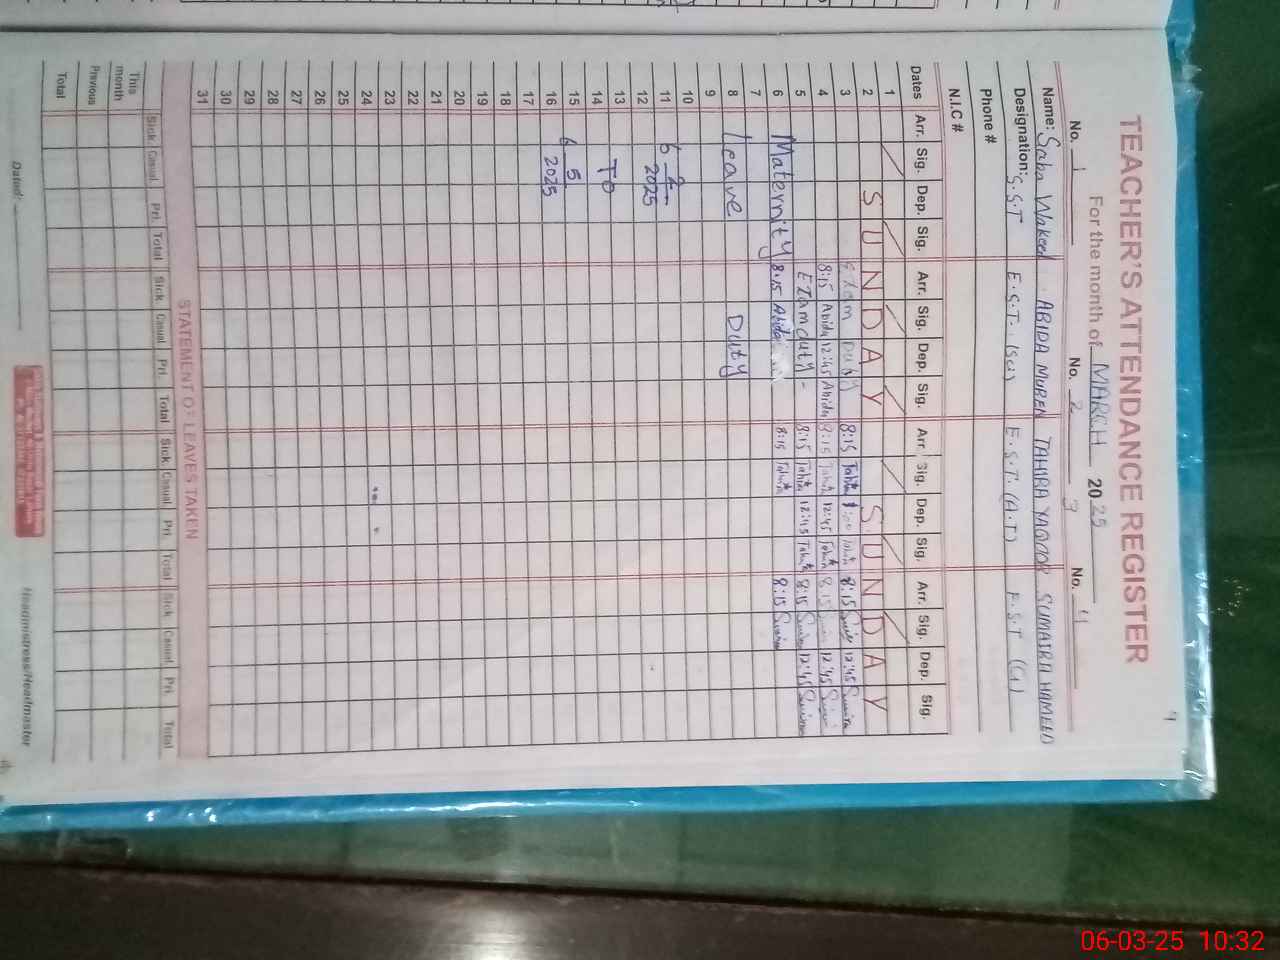 TEACHER'S ATTENDANCE REGISTER
For the month of MARCH 2025
No. 1 No. 2 3 No. 4
Name: Saba Waheed ABIDA MUREN TAHIRA YAQOOB SUMAIRA HAMEED
Designation: S.S.T E.S.T. (Sci) E.S.T. (A.T) E.S.T (G)
Phone #
N.I.C #
Dates Arr. Sig. Dep. Sig. Arr. Sig. Dep. Sig. Arr. Sig. Dep. Sig. Arr. Sig. Dep. Sig.
1
2 S U N D A Y S U N D A Y
3 Exam Duty 8:15 Tahira 1:00 Tahira 8:15 12:45
4 8:15 Abida 12:45 Abida 8:15 Tahira 12:45 Tahira 8:15 12:45
5 Exam duty - 8:15 Tahira 12:45 Tahira 8:15 12:45
6 Maternity 8:15 Abida 8:15 Tahira 8:15
7
8 Leave Duty
9
10
11 6 2 2025
12
13
14 To
15 6 5 2025
16
17
18
19
20
21
22
23
24
25
26
27
28
29
30
31
STATEMENT OF LEAVES TAKEN
Sick. Casual. Pri. Total Sick. Casual Pri. Total Sick. Casual. Pri. Total Sick Casual Pri. Total
This month
Previous
Total
Dated: Headmistress/Headmaster
06-03-25 10:32